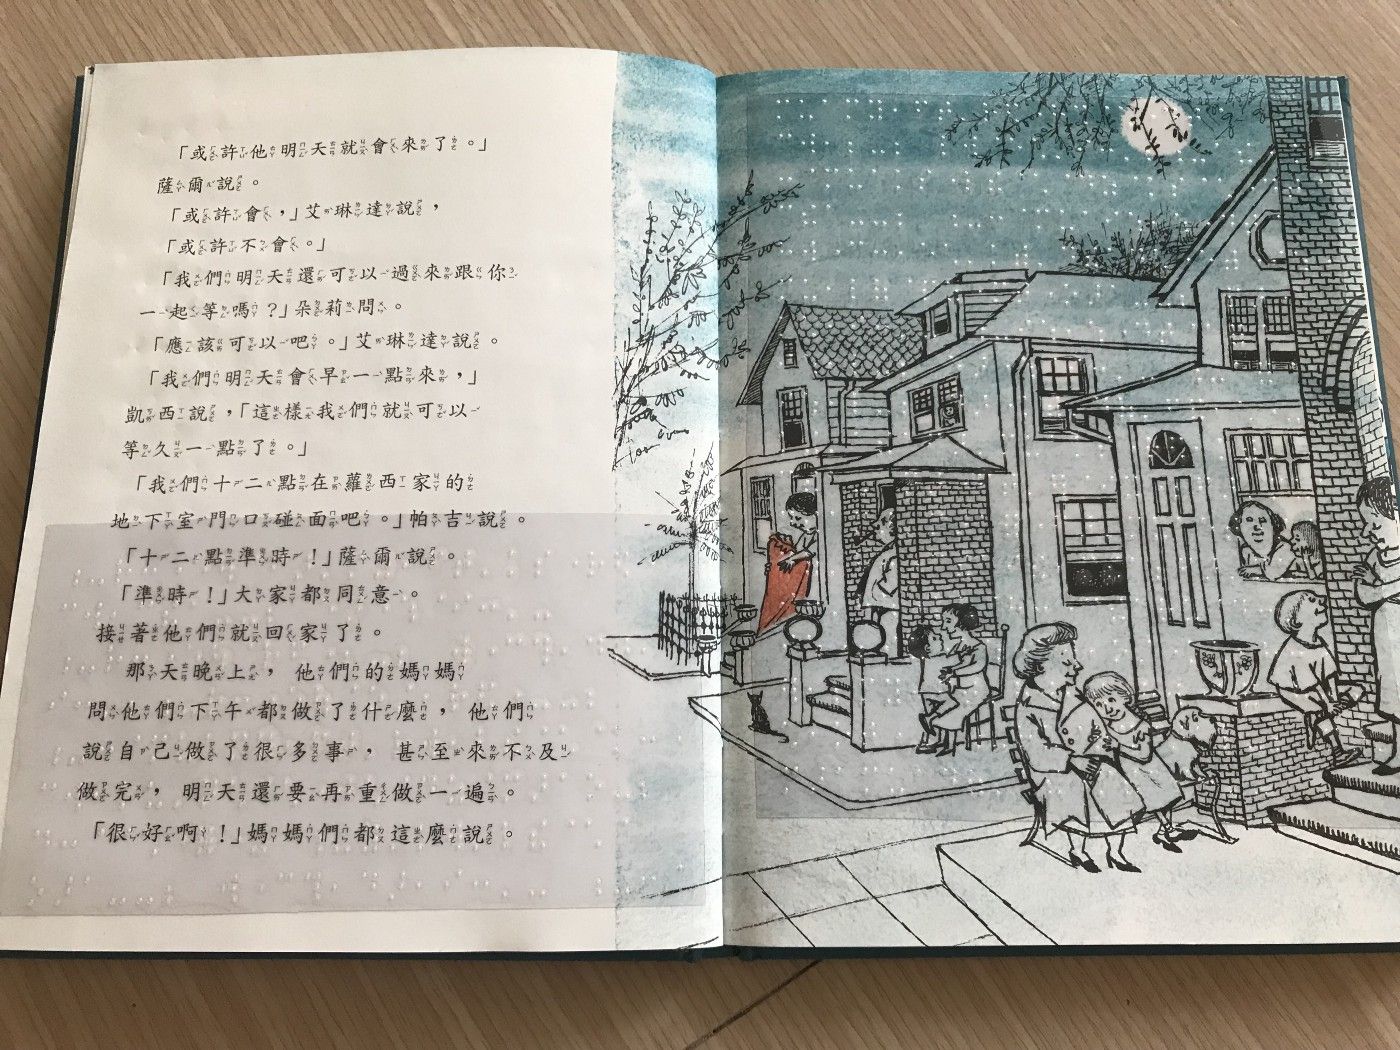 「或許他明天就會來了。」
薩爾說。
「或許會，」艾琳達說，
「或許不會。」
「我們明天還可以過來跟你
一起等嗎？」朵莉問。
「應該可以吧。」艾琳達說。
「我們明天會早一點來，」
凱西說，「這樣我們就可以
等久一點了。」
「我們十二點在蘿西家的
地下室門口碰面吧。」帕吉說。
「十二點準時！」薩爾說。
「準時！」大家都同意。
接著他們就回家了。
那天晚上， 他們的媽媽
問他們下午都做了什麼， 他們
說自己做了很多事， 甚至來不及
做完， 明天還要再重做一遍。
「很好啊！」媽媽們都這麼說。